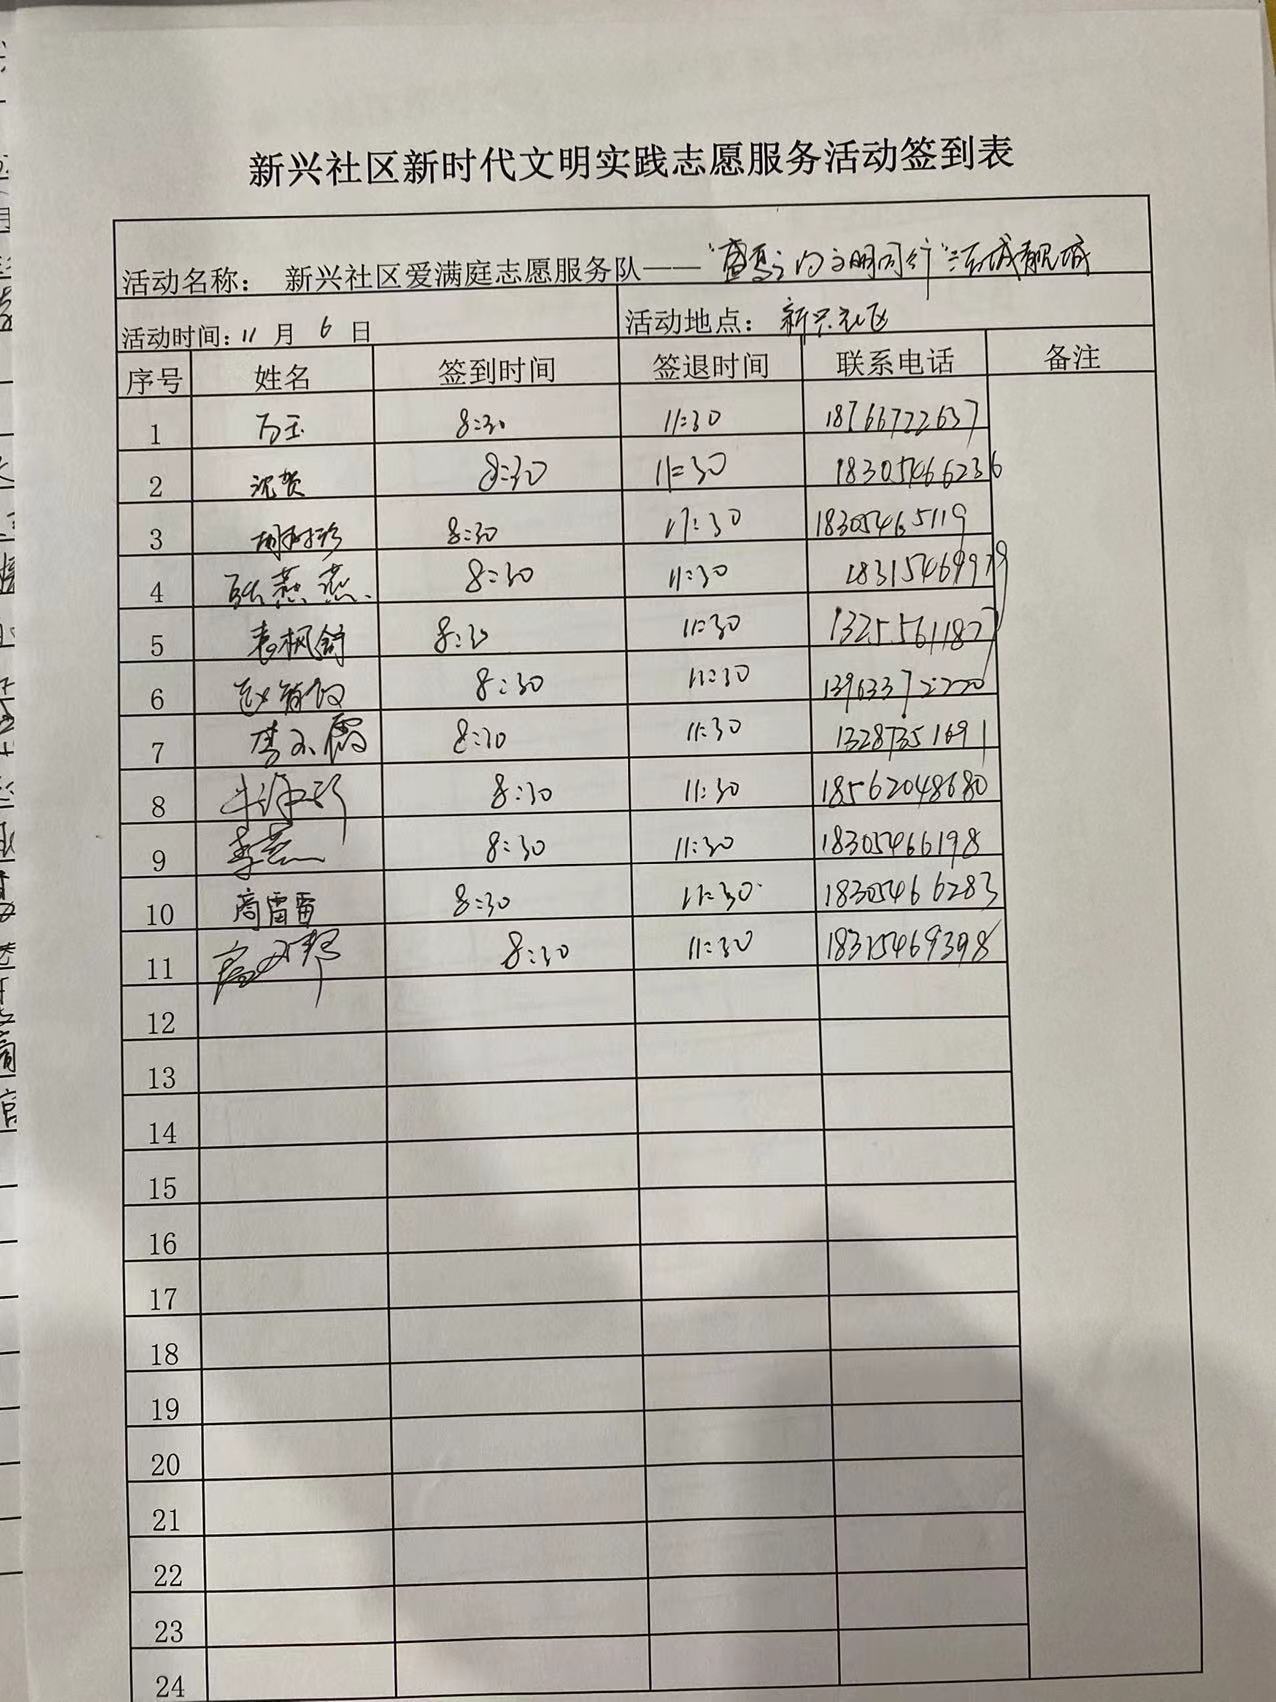 新兴社区新时代文明实践志愿服务活动签到表
活动名称： 新兴社区爱满庭志愿服务队—— 文明同行 洁城靓城
活动时间：11 月 6 日 活动地点：新兴社区
序号 姓名 签到时间 签退时间 联系电话 备注
1 万玉 8:30 11:30 18766722637
2 沈贺 8:30 11:30 18305466236
3 胡树珍 8:30 11:30 18305465119
4 张燕燕 8:30 11:30 18315469979
5 袁枫舒 8:30 11:30 13255611877
6 8:30 11:30 13963372220
7 8:30 11:30 13287351691
8 8:30 11:30 18562048680
9 李燕 8:30 11:30 18305466198
10 商雷雷 8:30 11:30 18305466283
11 8:30 11:30 18315469398
12
13
14
15
16
17
18
19
20
21
22
23
24